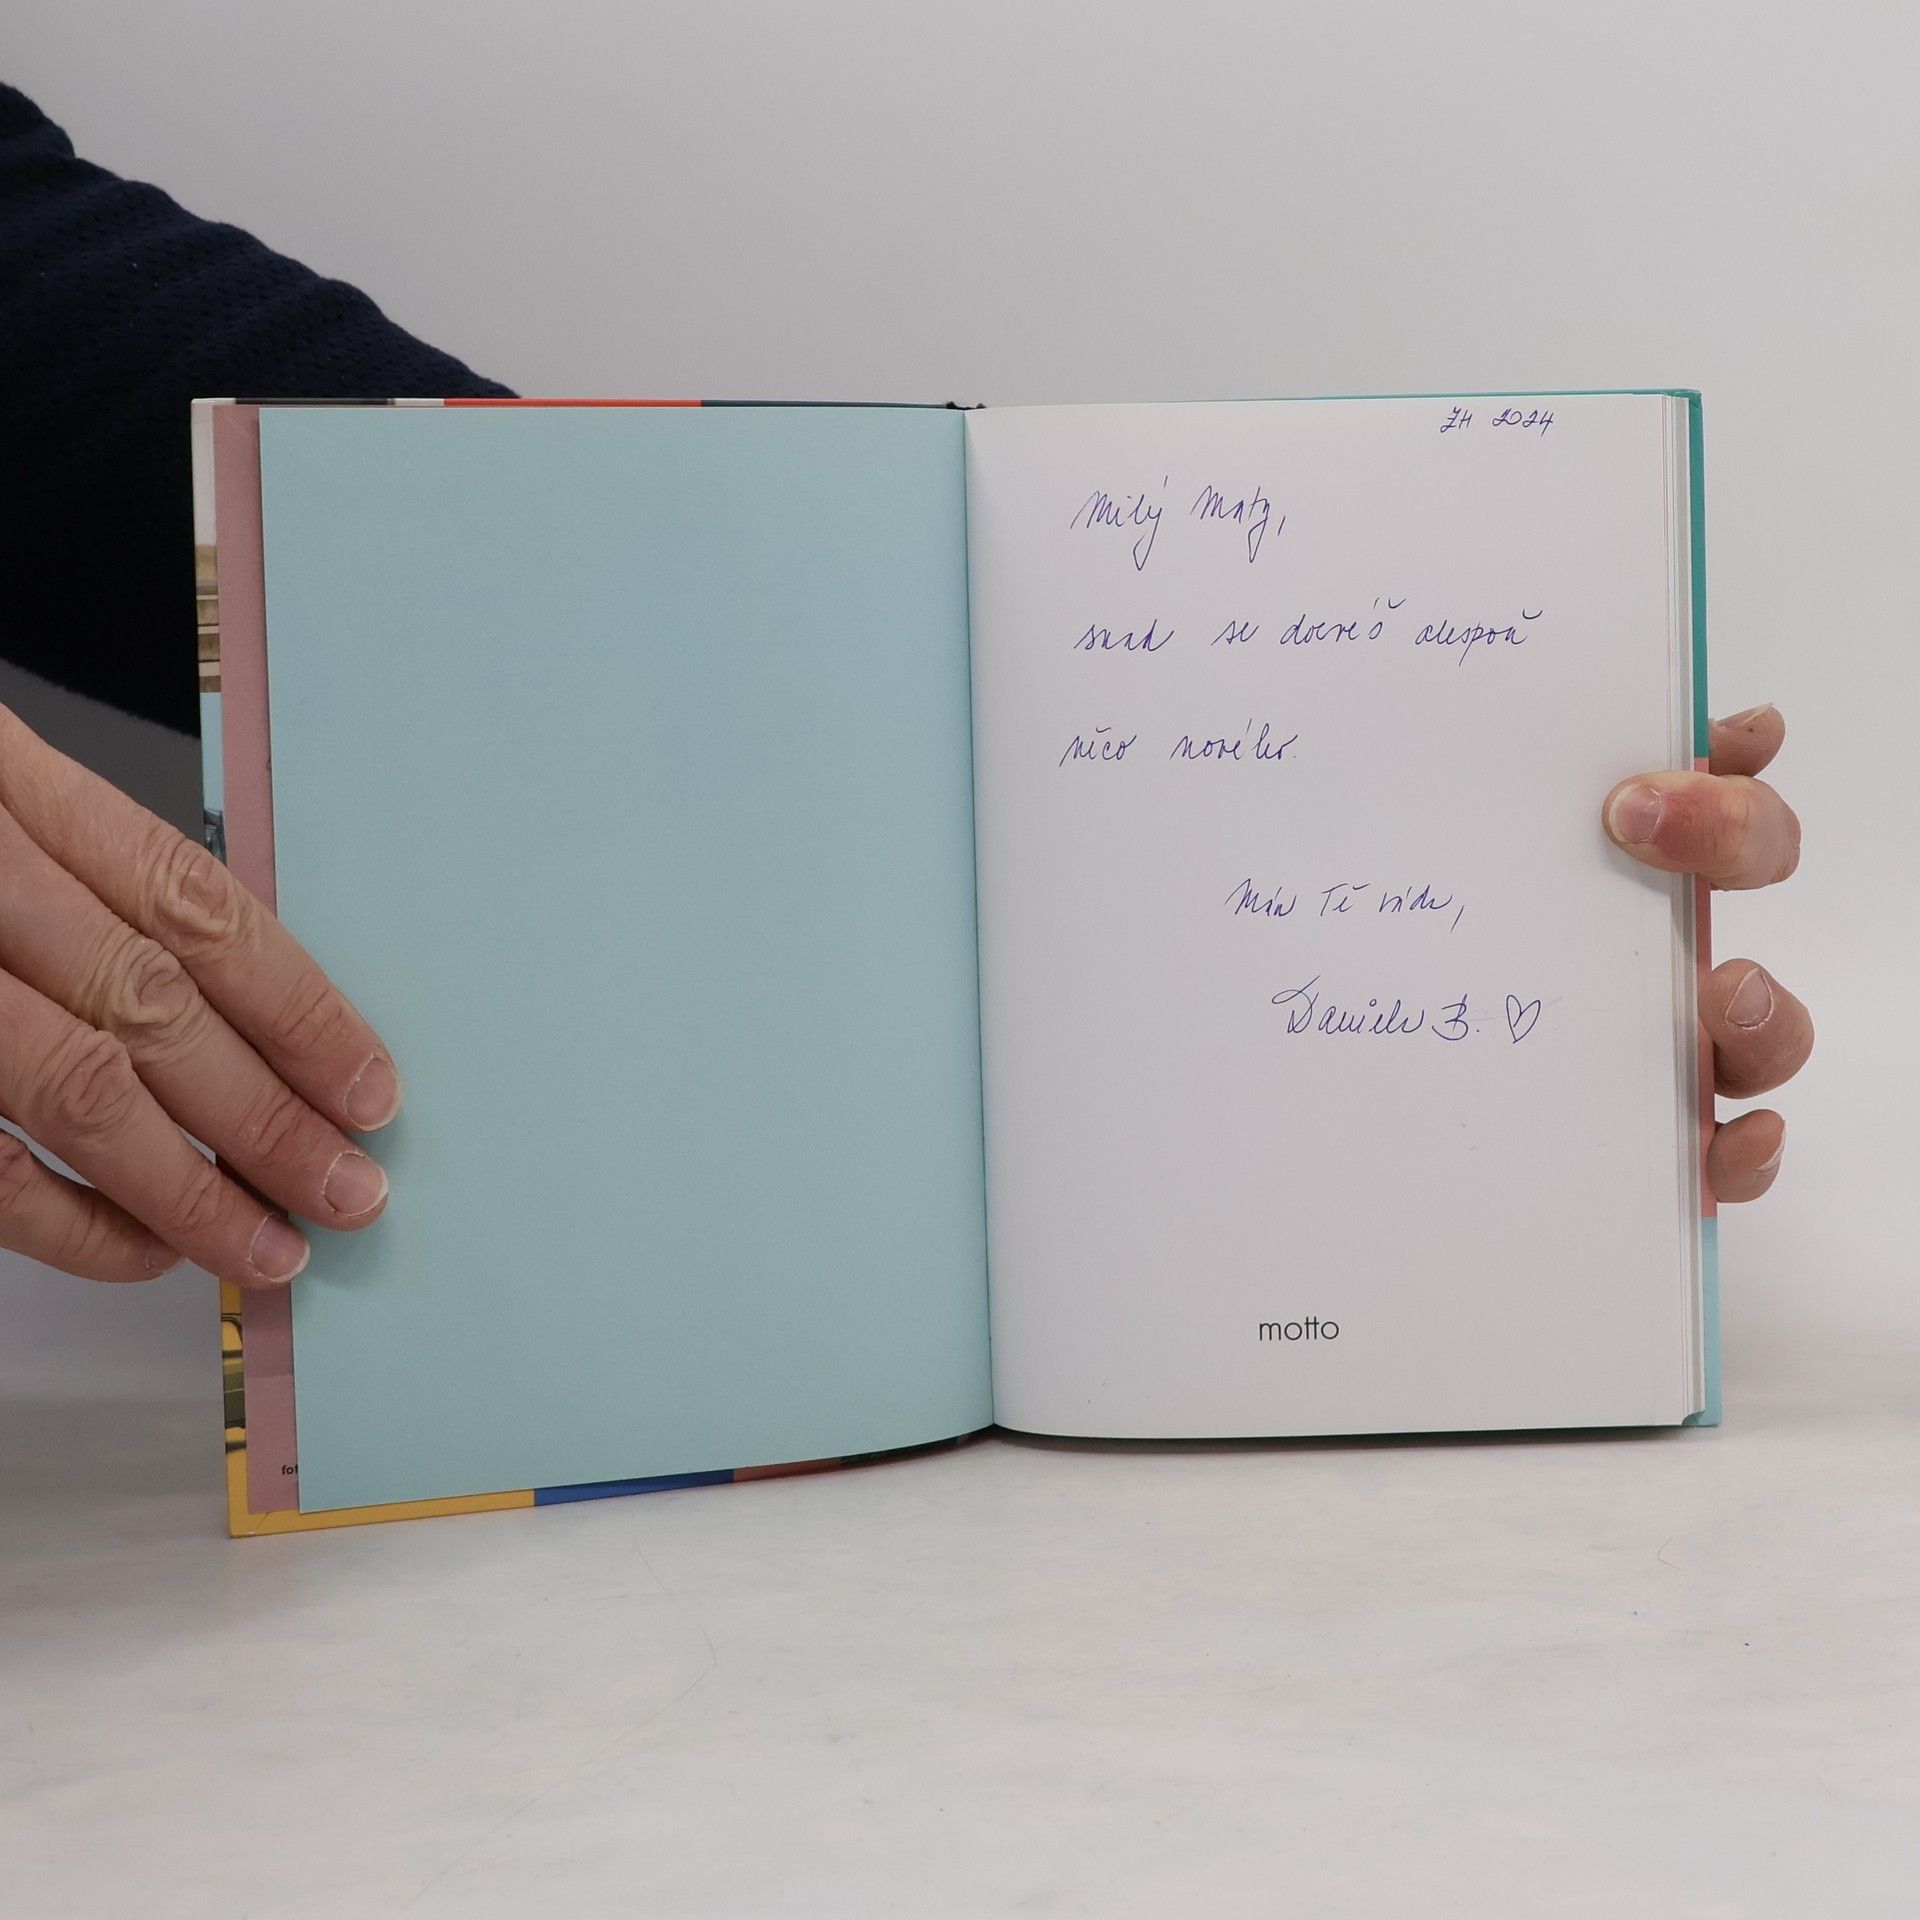 ZH 2024
Milý Maty,
snad se dozvíš alespoň
něco nového.
Mám Tě ráda,
Daniela B. ♡
motto
fot